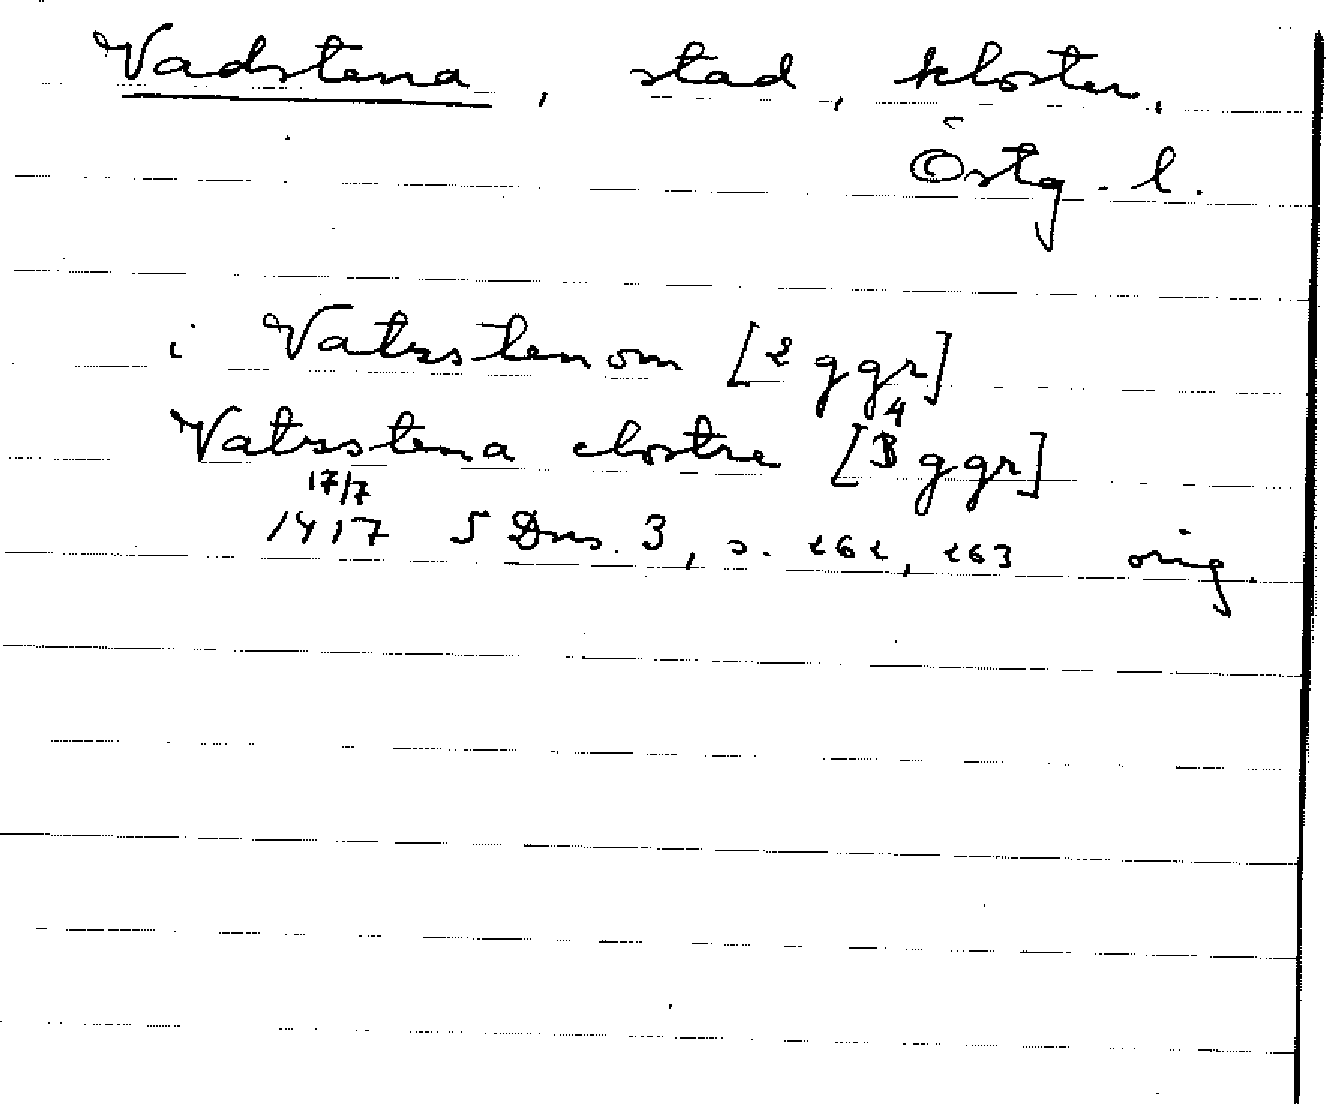 Vadstena, stad, kloster,
Östg. l.
i Vatzstenom [2 ggr]
4
Vatzstena clostre [3 ggr]
17/7
1417 SDns. 3, s. 262, 263 orig.